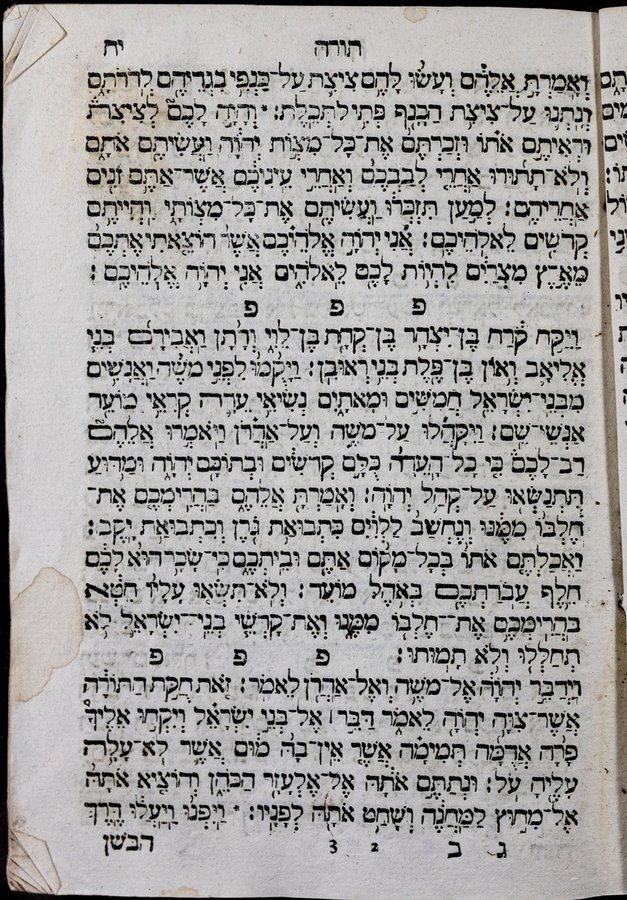 יח תורה
וְאָמַרְתָּ אֲלֵהֶם וְעָשׂוּ לָהֶם צִיצִת עַל־כַּנְפֵי בִגְדֵיהֶם לְדֹרֹתָם
וְנָתְנוּ עַל־צִיצִת הַכָּנָף פְּתִיל תְּכֵלֶת: * וְהָיָה לָכֶם לְצִיצִת
וּרְאִיתֶם אֹתוֹ וּזְכַרְתֶּם אֶת־כָּל־מִצְוֹת יְהוָה וַעֲשִׂיתֶם אֹתָם
וְלֹא־תָתוּרוּ אַחֲרֵי לְבַבְכֶם וְאַחֲרֵי עֵינֵיכֶם אֲשֶׁר־אַתֶּם זֹנִים
אַחֲרֵיהֶם: לְמַעַן תִּזְכְּרוּ וַעֲשִׂיתֶם אֶת־כָּל־מִצְוֹתָי וִהְיִיתֶם
קְדֹשִׁים לֵאלֹהֵיכֶם: אֲנִי יְהוָה אֱלֹהֵיכֶם אֲשֶׁר הוֹצֵאתִי אֶתְכֶם
מֵאֶרֶץ מִצְרַיִם לִהְיוֹת לָכֶם לֵאלֹהִים אֲנִי יְהוָה אֱלֹהֵיכֶם:
פ פ פ
וַיִּקַּח קֹרַח בֶּן־יִצְהָר בֶּן־קְהָת בֶּן־לֵוִי וְדָתָן וַאֲבִירָם בְּנֵי
אֱלִיאָב וְאוֹן בֶּן־פֶּלֶת בְּנֵי רְאוּבֵן: וַיָּקֻמוּ לִפְנֵי מֹשֶׁה וַאֲנָשִׁים
מִבְּנֵי־יִשְׂרָאֵל חֲמִשִּׁים וּמָאתָיִם נְשִׂיאֵי עֵדָה קְרִאֵי מוֹעֵד
אַנְשֵׁי־שֵׁם: וַיִּקָּהֲלוּ עַל־מֹשֶׁה וְעַל־אַהֲרֹן וַיֹּאמְרוּ אֲלֵהֶם
רַב־לָכֶם כִּי כָל־הָעֵדָה כֻּלָּם קְדֹשִׁים וּבְתוֹכָם יְהוָה וּמַדּוּעַ
תִּתְנַשְּׂאוּ עַל־קְהַל יְהוָה: וְאָמַרְתָּ אֲלֵהֶם בַּהֲרִימְכֶם אֶת־
חֶלְבּוֹ מִמֶּנּוּ וְנֶחְשַׁב לַלְוִיִּם כִּתְבוּאַת גֹּרֶן וְכִתְבוּאַת יָקֶב:
וַאֲכַלְתֶּם אֹתוֹ בְּכָל־מָקוֹם אַתֶּם וּבֵיתְכֶם כִּי־שָׂכָר הוּא לָכֶם
חֵלֶף עֲבֹדַתְכֶם בְּאֹהֶל מוֹעֵד: וְלֹא־תִשְׂאוּ עָלָיו חֵטְא
בַּהֲרִימְכֶם אֶת־חֶלְבּוֹ מִמֶּנּוּ וְאֶת־קָדְשֵׁי בְנֵי־יִשְׂרָאֵל לֹא
תְחַלְּלוּ וְלֹא תָמוּתוּ: פ פ פ
וַיְדַבֵּר יְהוָה אֶל־מֹשֶׁה וְאֶל־אַהֲרֹן לֵאמֹר: זֹאת חֻקַּת הַתּוֹרָה
אֲשֶׁר־צִוָּה יְהוָה לֵאמֹר דַּבֵּר׀ אֶל־בְּנֵי יִשְׂרָאֵל וְיִקְחוּ אֵלֶיךָ
פָרָה אֲדֻמָּה תְּמִימָה אֲשֶׁר אֵין־בָּהּ מוּם אֲשֶׁר לֹא־עָלָה
עָלֶיהָ עֹל: וּנְתַתֶּם אֹתָהּ אֶל־אֶלְעָזָר הַכֹּהֵן וְהוֹצִיא אֹתָהּ
אֶל־מִחוּץ לַמַּחֲנֶה וְשָׁחַט אֹתָהּ לְפָנָיו: * וַיִּפְנוּ וַיַּעֲלוּ דֶּרֶךְ
ג ב 2 3 הבשן